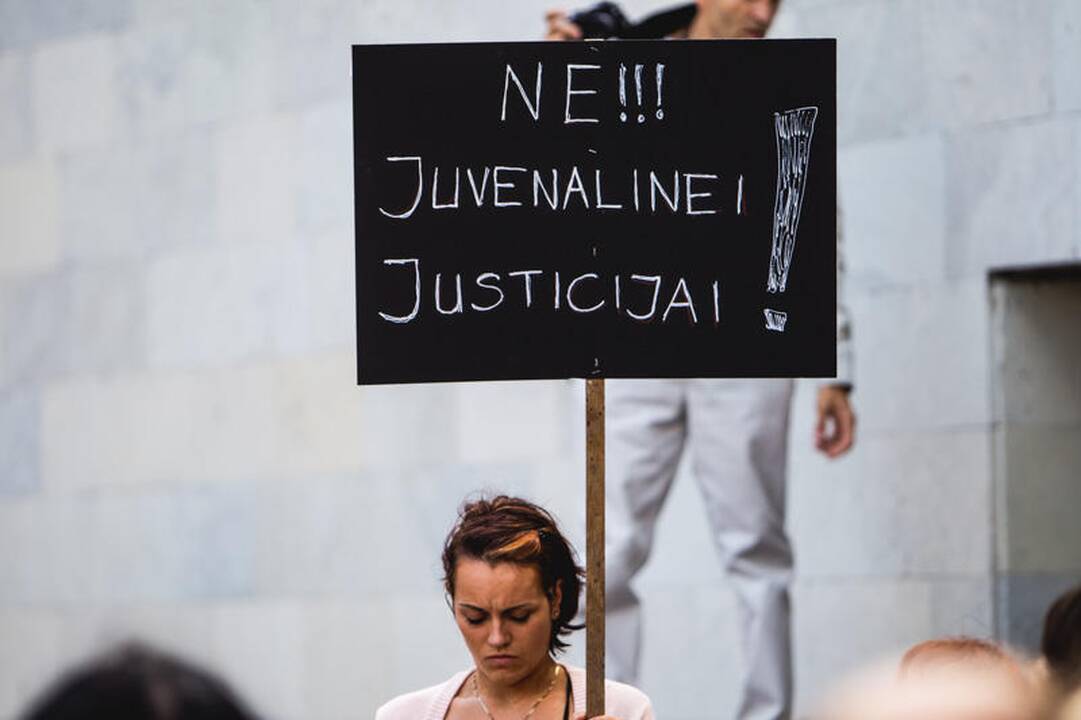 NE!!!
JUVENALINEI
JUSTICIJAI !